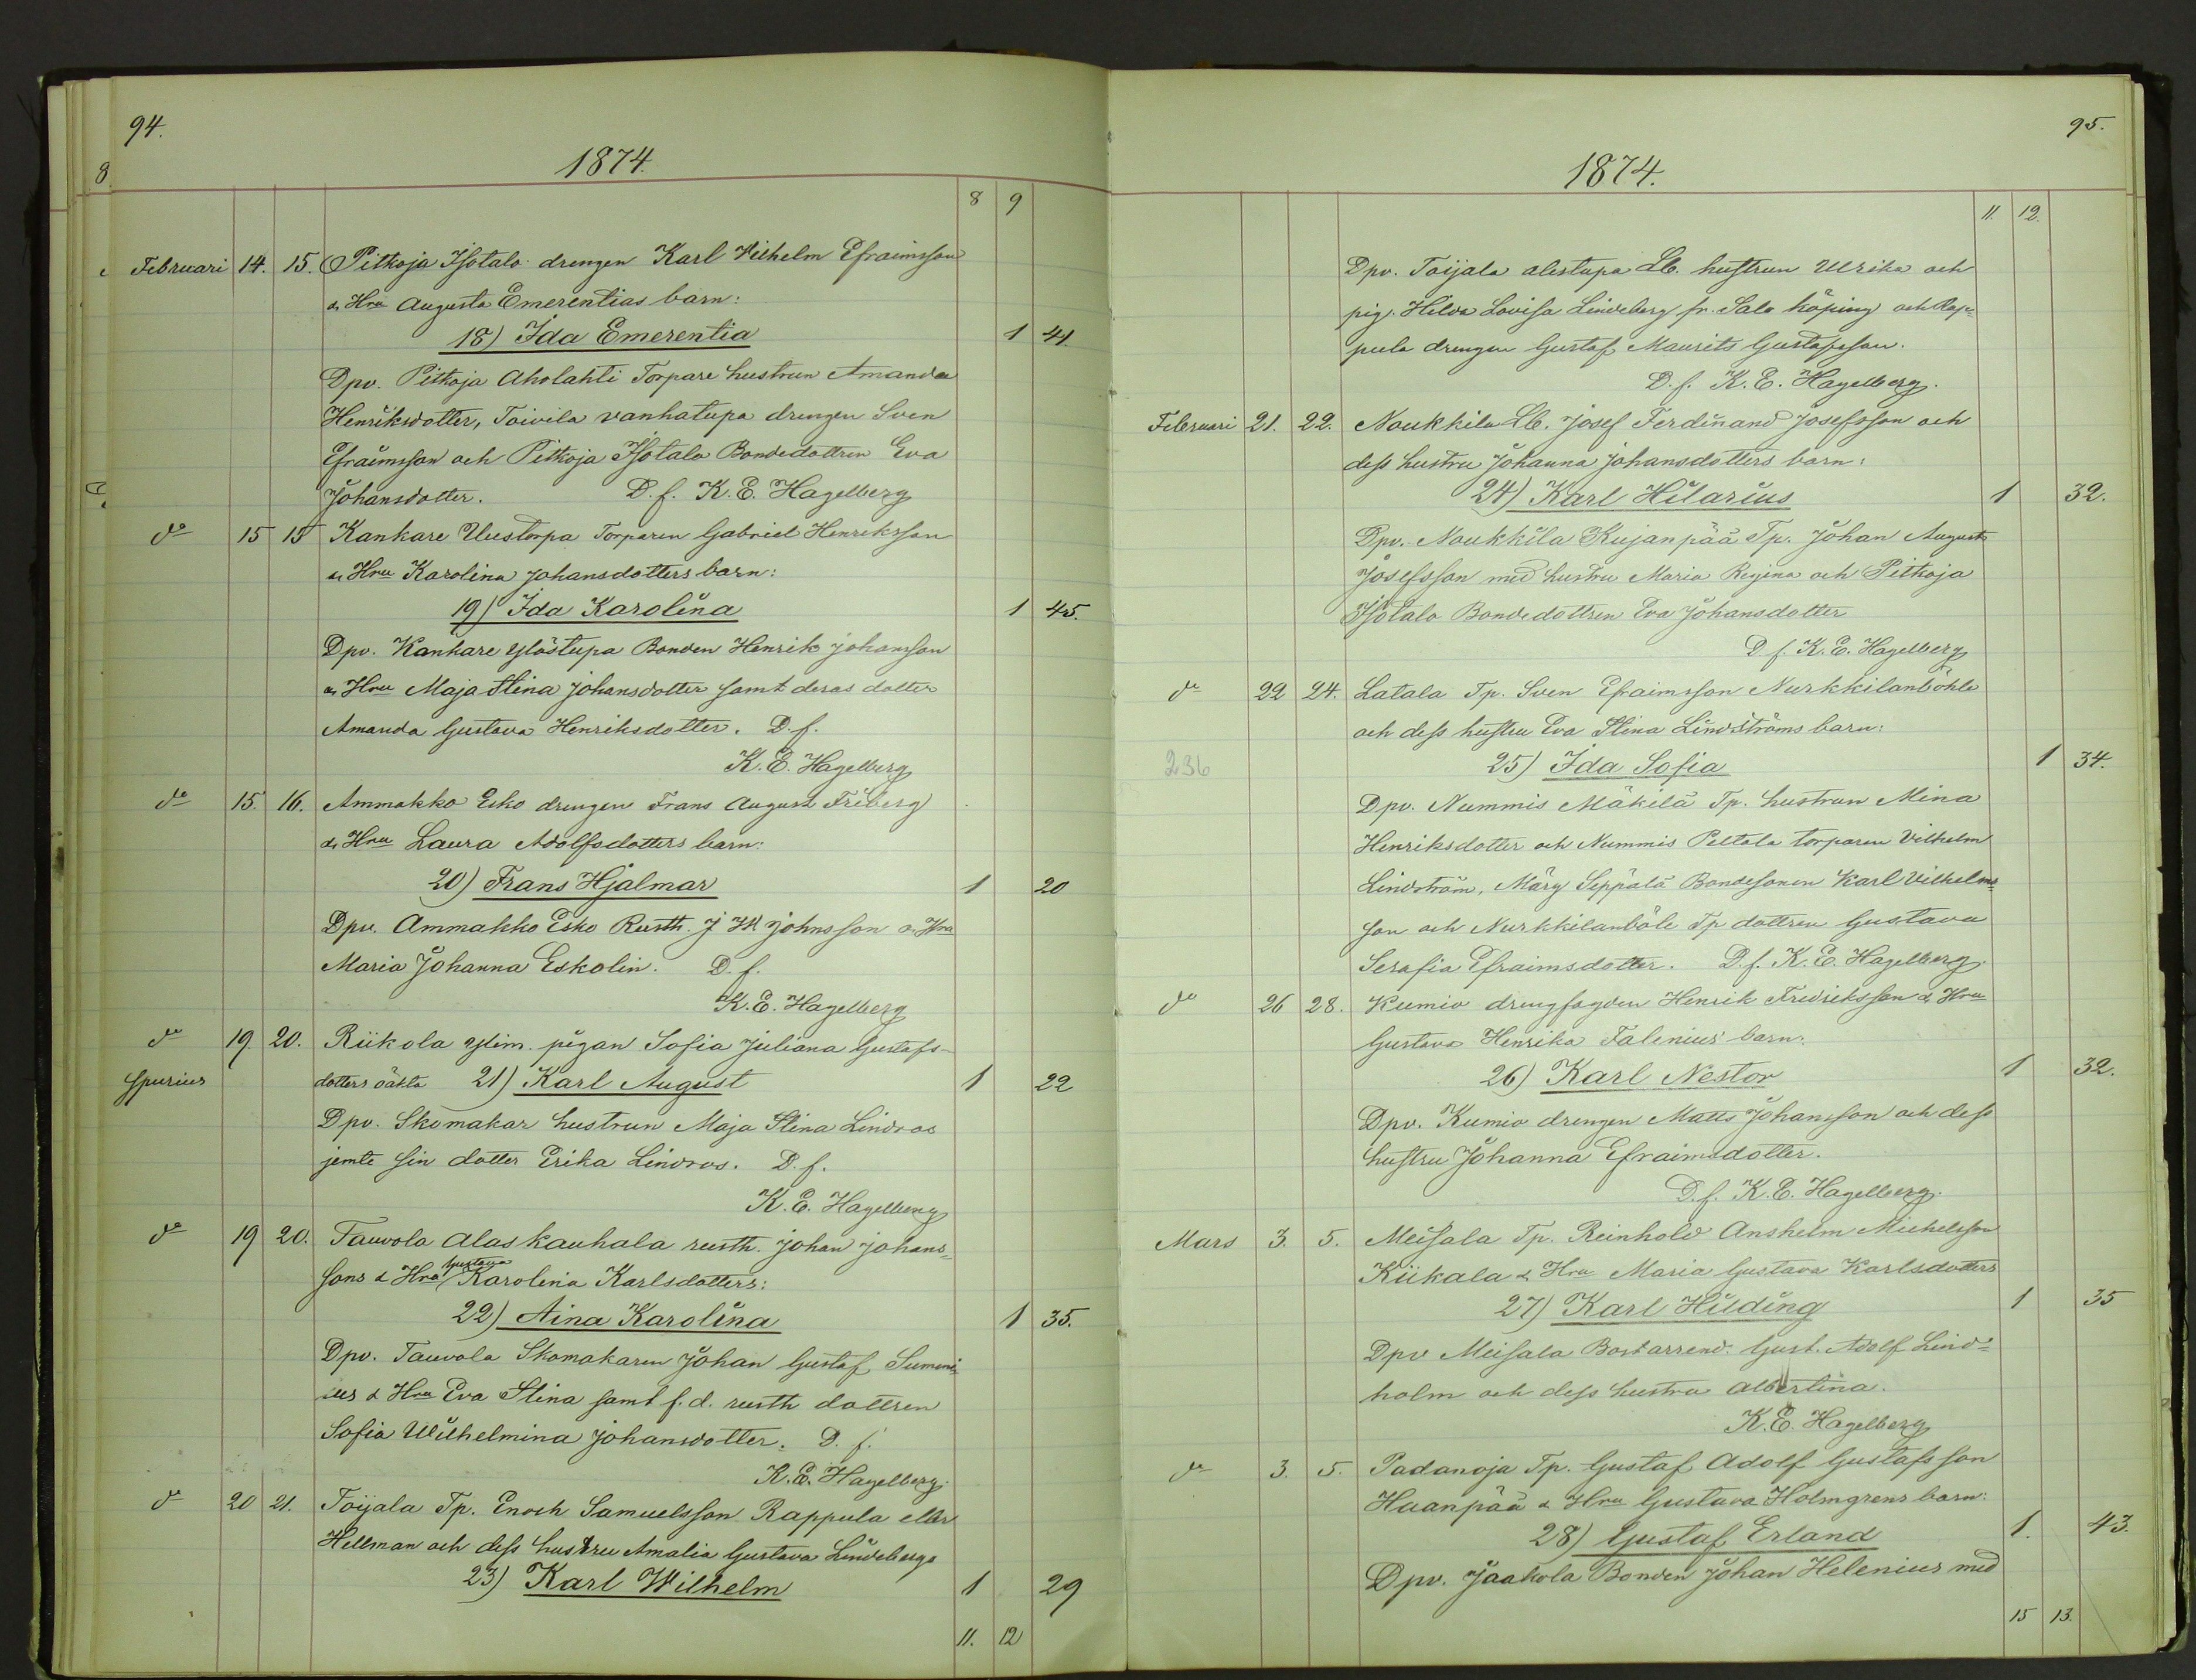 94.
8
1874.
8 9
Februari 14. 15. Pitkoja Isotalo drengen Karl Wilhelm Efraimsson
& Hru Augusta Emerentias barn:
18) Ida Emerentia 1 41.
Dpv. Pitkoja Aholahti Torpare hustrun Amanda
Henriksdotter, Toivila vanhatupa drengen Sven
Efraimsson och Pitkoja Isotalo Bondedottren Eva
Johansdotter. D. f. K. E. Hagelberg
do 15 15 Kankare Uustorpa Torparen Gabriel Henriksson
& Hru Karolina Johansdotters barn:
19) Ida Karolina 1 45.
Dpv. Kankare Ylöstupa Bonden Henrik Johansson
& Hru Maja Stina Johansdotter samt deras dotter
Amanda Gustava Henriksdotter. D. f.
K. E. Hagelberg
do 15. 16. Ammakko Esko drengen Frans August Friberg
& Hru Laura Adolfsdotters barn:
20) Frans Hjalmar 1 20
Dpv. Ammakko Esko Rusth. J Johnsson & Hru
Maria Johanna Eskolin. D. f.
K. E. Hagelberg
do 19. 20. Riikola Ylim. pigan Sofia Juliana Gustafs-
spurius dotters oäkta 21) Karl August 1 22
Dpv. Skomakar hustrun Maja Stina Lindros
jemte sin dotter Erika Lindros. D. f.
K. E. Hagelberg
do 19 20. Tauvola Alaskauhala rusth. Johan Johans-
sons & Hru Gustava Karolina Karlsdotters:
22) Aina Karolina 1 35.
Dpv. Tauvola Skomakaren Johan Gustaf
& Hru Eva Stina samt f. d. rusth dottren
Sofia Wilhelmina Johansdotter. D. f.
K. E. Hagelberg.
do 20 21. Toijala Tp. Enoch Samuelsson Rappula eller
Hellman och dess hustru Amalia Gustava Lindebergs
23) Karl Wilhelm 1 29
11. 12
95.
1874.
11. 12.
Dpv. Toijala alistupa Lb. hustrun Ulrika och
pig. Hilda Lovisa Lindeberg fr. Salo köping och Rap-
pula drengen Gustaf Maurits Gustafsson.
D. f. K. E. Hagelberg.
Februari 21. 22. Noukkila Lb. Josef Ferdinand Josefsson och
dess hustru Johanna Johansdotters barn:
24) Karl Hilarius 1 32.
Dpv. Noukkila Kujanpää Tp. Johan August
Josefsson med hustru Maria Regina och Pitkoja
Isotalo Bondedottren Eva Johansdotter
D. f. K. E. Hagelberg
do 22 24. Latala Tp. Sven Efraimsson Nurkkilanböhle
och dess hustru Eva Stina Lindströms barn:
236
25) Ida Sofia 1 34.
Dpv. Nummis Mäkilä Tp. hustrun Mina
Henriksdotter och Nummis Peltola torparen Vilhelm
Lindström, Märy Seppälä Bondesonen Karl Vilhelms-
son och Nurkkilanböle Tp dottren Gustava
Serafia Efraimsdotter. D. f. K. E. Hagelberg.
do 26 28. Kumio drengfogden Henrik Fredriksson & Hru
Gustava Henrika Falenius' barn:
26) Karl Nestor 1 32.
Dpv. Kumio drengen Matts Johansson och dess
hustru Johanna Efraimsdotter.
D. f. K. E. Hagelberg.
Mars 3. 5. Meisala Tp. Reinhold Anshelm Michelsson
Kiikala & Hru Maria Gustava Karlsdotters
27) Karl Hilding 1 35
Dpv Meisala Bost arrend. Gust. Adolf Lind-
holm och dess hustru Albertina.
K. E. Hagelberg
do 3. 5. Padanoja Tp. Gustaf Adolf Gustafsson
Haanpää & Hru Gustava Holmgrens barn:
28) Gustaf Erland 1. 43.
Dpv. Jaakola Bonden Johan Helenius med
15 13.